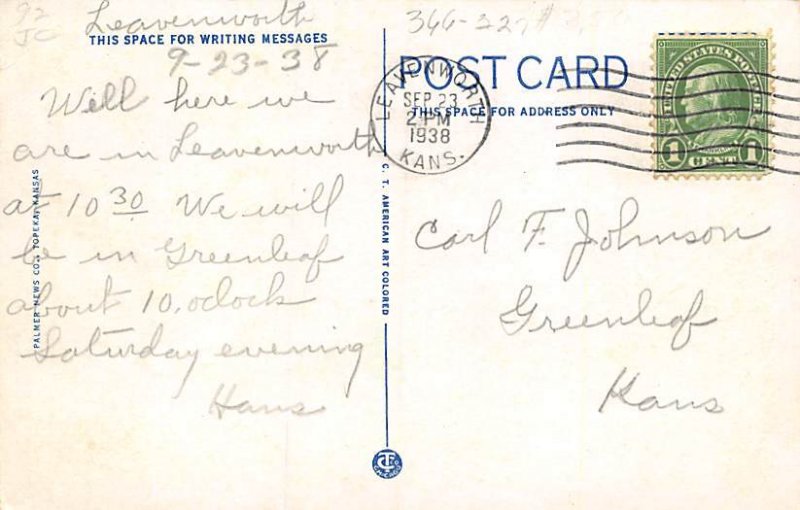 92
JC
Leavenworth
THIS SPACE FOR WRITING MESSAGES
9-23-38
Will here we
are in Leavenworth
at 10 30 We will
be in Greenleaf
about 10,oclock
Saturday evening
Hans
PALMER NEWS CO., TOPEKA, KANSAS
C. T. AMERICAN ART COLORED
CT
CHICAGO
POST CARD
THIS SPACE FOR ADDRESS ONLY
LEAVENWORTH
SEP 23
2 PM
1938
KANS.
UNITED STATES POSTAGE
FRANKLIN
1 CENT 1
Carl F. Johnson
Greenleaf
Kans